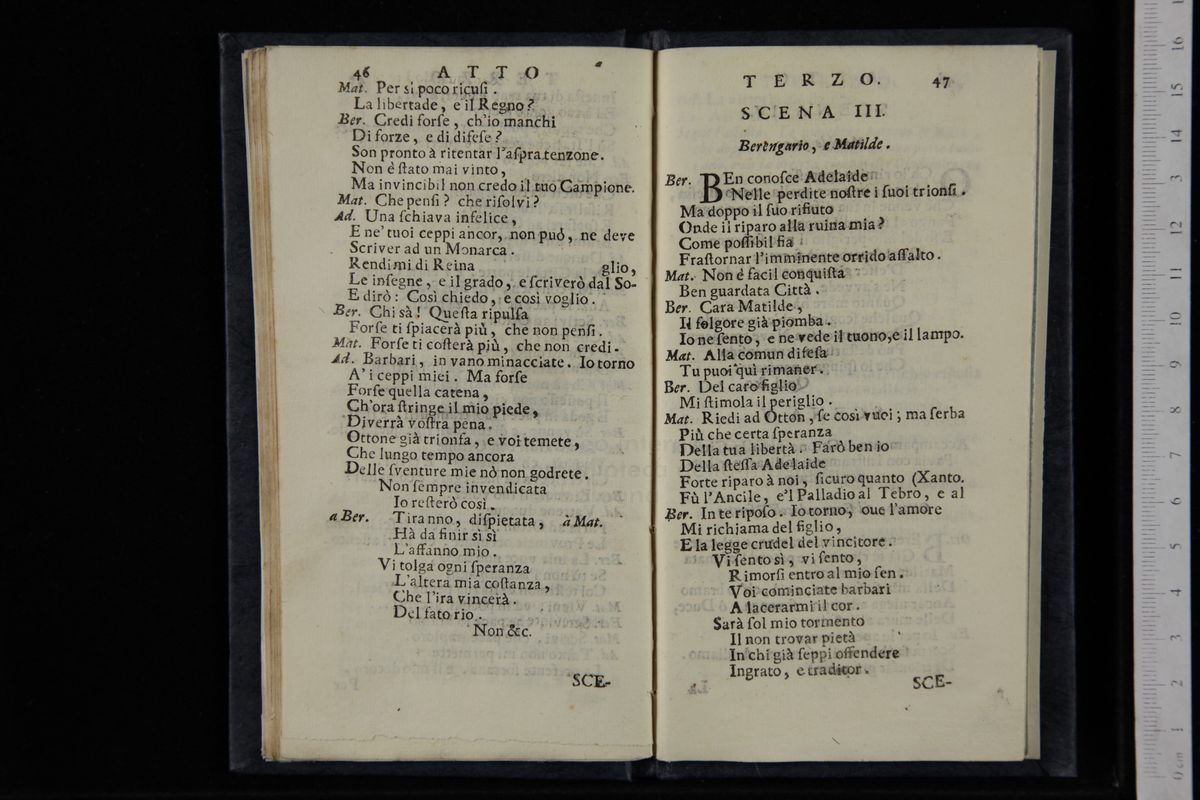 46 ATTO
Mat. Per sì poco ricuſi .
La libertade , e il Regno ?
Ber. Credi forſe , ch'io manchi
Di forze , e di difeſe ?
Son pronto à ritentar l'aſpra tenzone.
Non è ſtato mai vinto ,
Ma invincibil non credo il tuo Campione.
Mat. Che penſi ? che riſolvi ?
Ad. Una ſchiava infelice ,
E ne' tuoi ceppi ancor, non può , ne deve
Scriver ad un Monarca .
Rendimi di Reina glio,
Le inſegne , e il grado , e ſcriverò dal So-
E dirò : Così chiedo , e così voglio .
Ber. Chi sà ! Queſta ripulſa
Forſe ti ſpiacerà più , che non penſi .
Mat. Forſe ti coſterà più , che non credi .
Ad. Barbari , in vano minacciate . Io torno
A' i ceppi miei . Ma forſe
Forſe quella catena ,
Ch'ora ſtringe il mio piede ,
Diverrà voſtra pena .
Ottone già trionfa , e voi temete ,
Che lungo tempo ancora
Delle ſventure mie nò non godrete .
Non ſempre invendicata
Io reſterò così .
a Ber. Tiranno , diſpietata , à Mat.
Hà da finir sì sì
L'affanno mio .
Vi tolga ogni ſperanza
L'altera mia coſtanza ,
Che l'ira vincerà .
Del fato rio .
Non &c.
SCE-
TERZO. 47
SCENA III.
Berengario , e Matilde .
Ber. BEn conoſce Adelaide
Nelle perdite noſtre i ſuoi trionfi .
Ma doppo il ſuo rifiuto
Onde il riparo alla ruina mia ?
Come poſſibil fia
Fraſtornar l'imminente orrido aſſalto .
Mat. Non è facil conquiſta
Ben guardata Città .
Ber. Cara Matilde ,
Il folgore già piomba .
Io ne ſento , e ne vede il tuono,e il lampo.
Mat. Alla comun difeſa
Tu puoi quì rimaner .
Ber. Del caro figlio
Mi ſtimola il periglio .
Mat. Riedi ad Otton , ſe così vuoi ; ma ſerba
Più che certa ſperanza
Della tua libertà . Farò ben io
Della ſteſſa Adelaide
Forte riparo à noi , ſicuro quanto (Xanto.
Fù l'Ancile , e'l Palladio al Tebro , e al
Ber. In te ripoſo . Io torno , oue l'amore
Mi richiama del figlio ,
E la legge crudel del vincitore .
Vi ſento sì , vi ſento ,
Rimorſi entro al mio ſen .
Voi cominciate barbari
A lacerarmi il cor .
Sarà ſol mio tormento
Il non trovar pietà
In chi già ſeppi offendere
Ingrato , e traditor .
SCE-